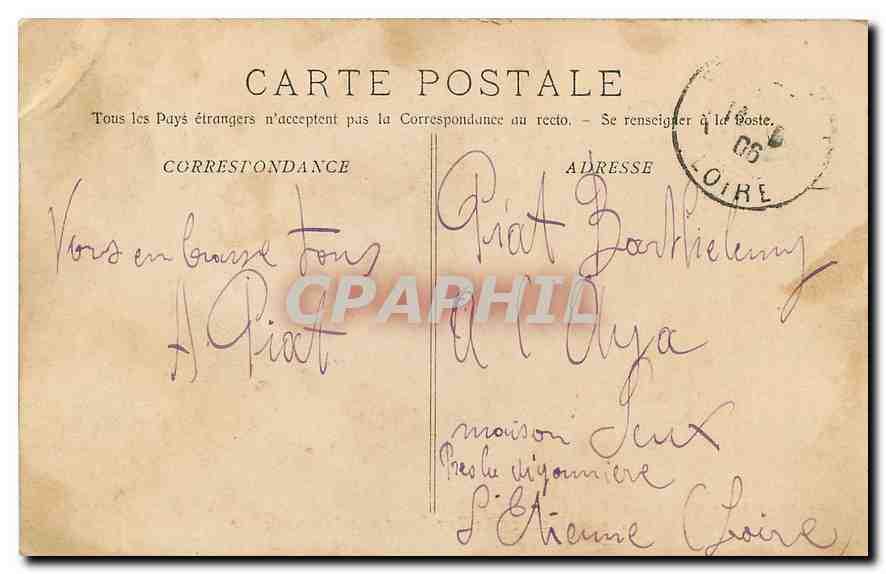 CARTE POSTALE
Tous les Pays étrangers n'acceptent pas la Correspondance au recto. - Se renseigner à la Poste.
CORRESPONDANCE
Vous en brasse tous
A Piat
ADRESSE
Piat Barthelemy
A l Aya
maison Seux
Pres la digonniere
St Etienne (Loire)
06
LOIRE
CPAPHIL